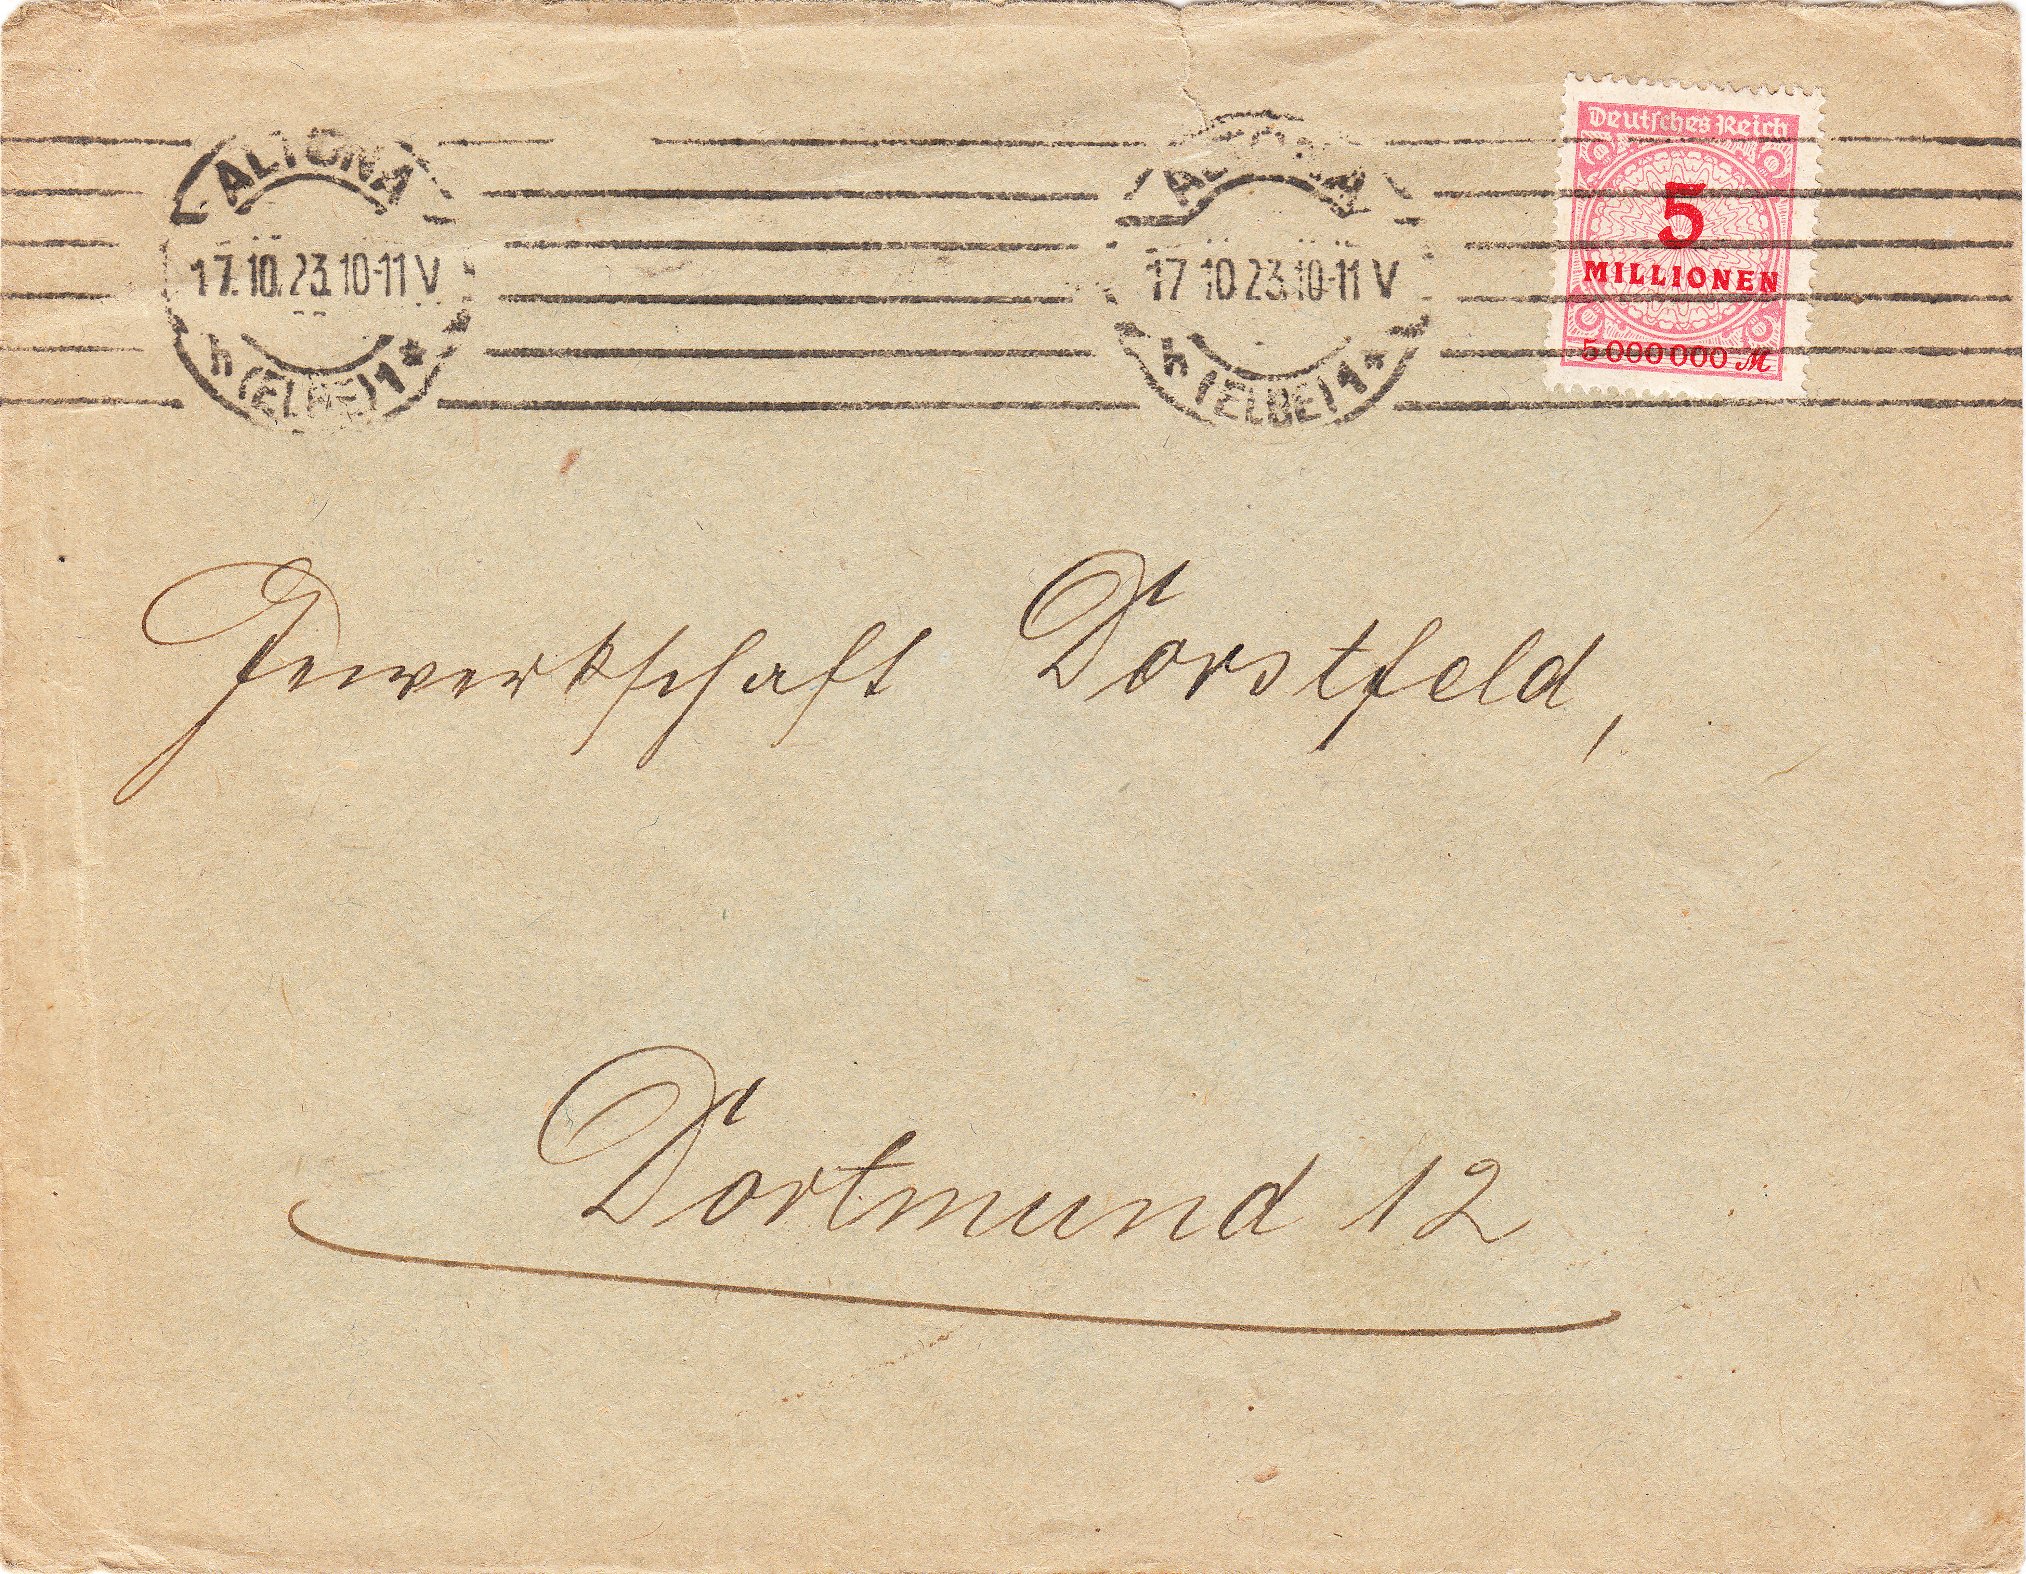 ALTONA
17.10.23.10-11 V
h (ELBE) 1 *
ALTONA
17.10.23.10-11 V
h (ELBE) 1 *
Deutsches Reich
5
MILLIONEN
5 000 000 M
Gewerkschaft Dorstfeld,
Dortmund 12